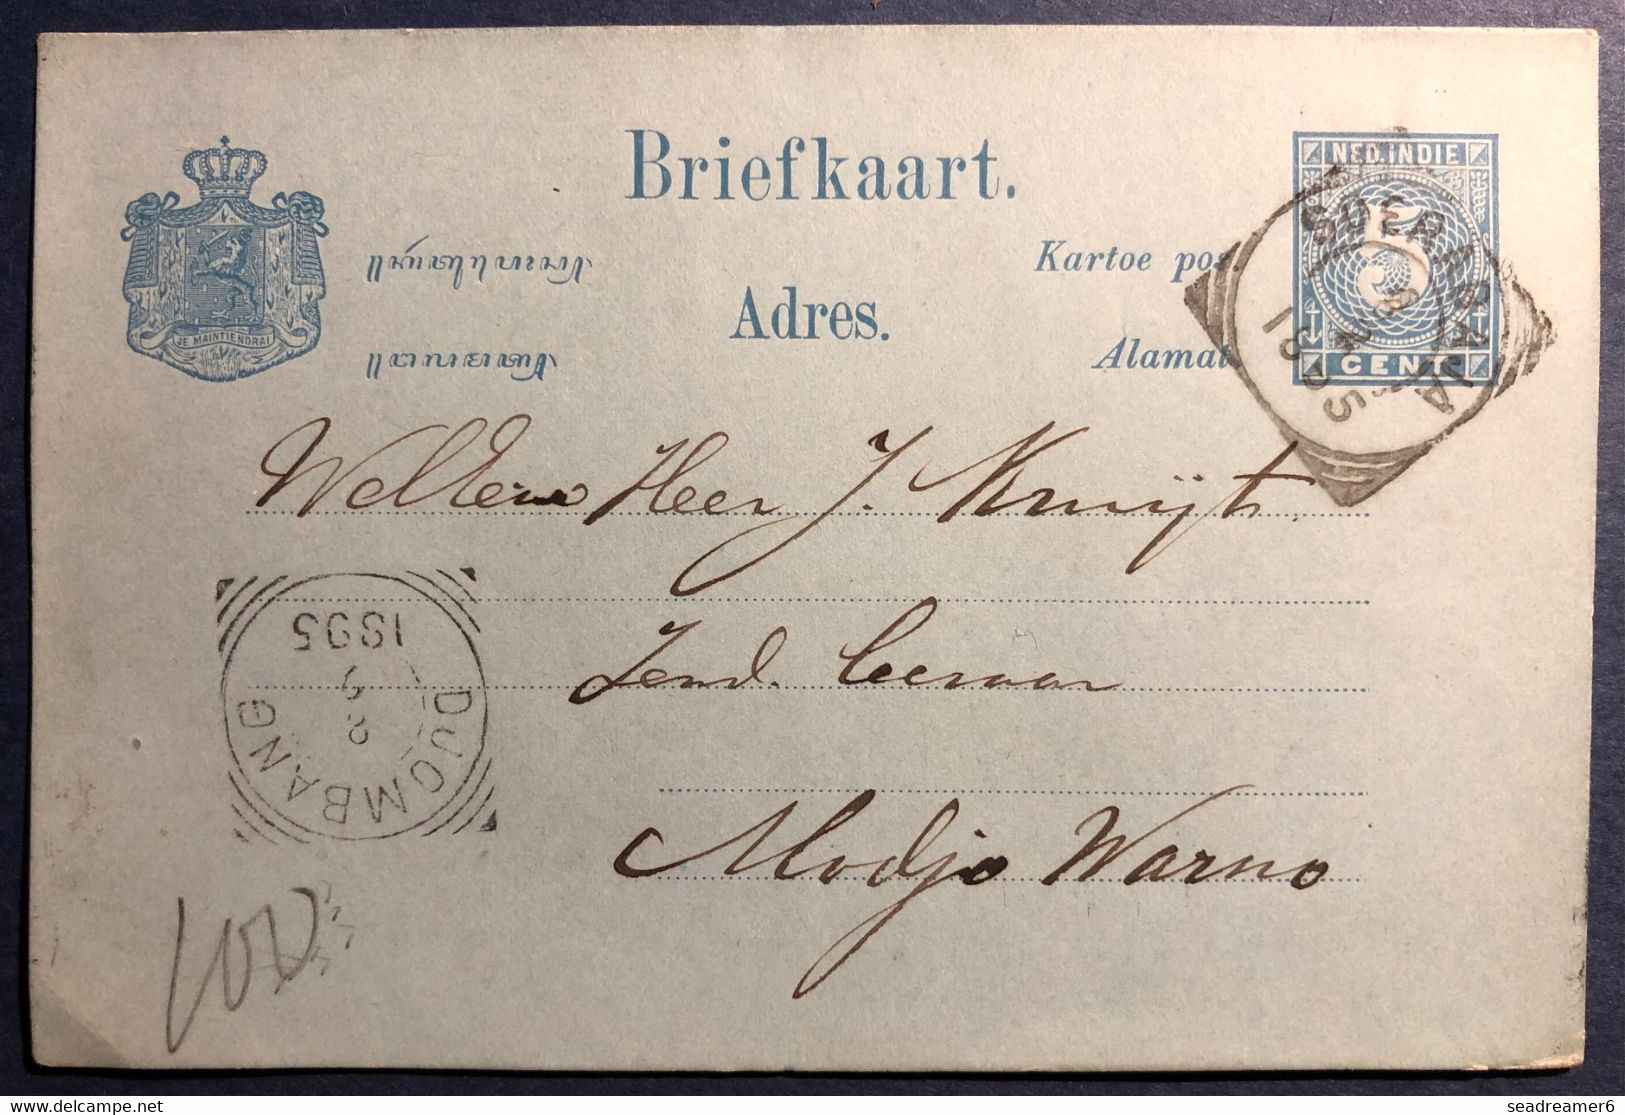 Briefkaart.
NED.INDIE
Kartoe pos.
Adres.
Alamat
JE MAINTIENDRAI
5
CENT
SOERABAJA
8 2
1895
WelEerw Heer J. Kruijt.
Zend. leeraar
Modjo Warno
DJOMBANG
2
1895
100
www.delcampe.net
seadreamer6